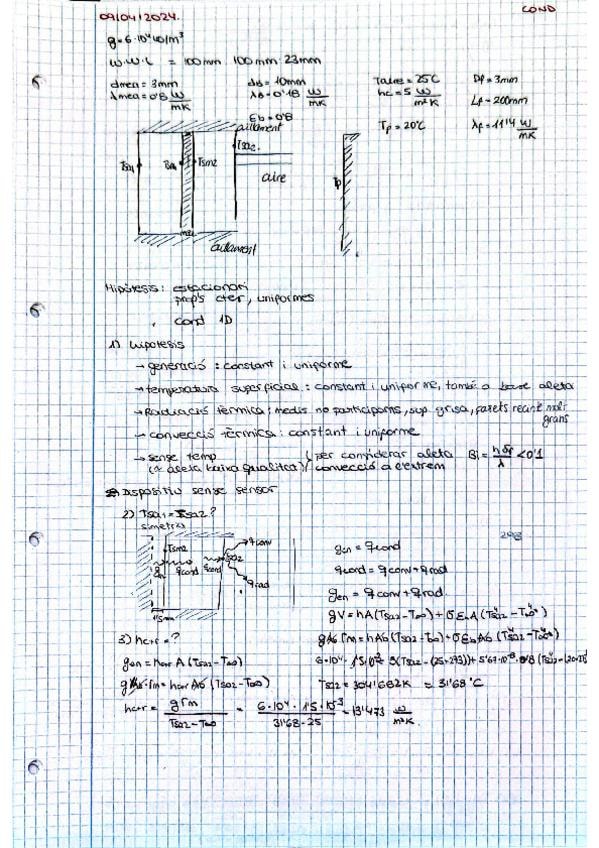 09/04/2024.
COND
g=6·10⁴ W/m³
W·W·L = 100mm 100mm 23mm
dmea = 3mm
λmea = 0'8 W/mK
db = 10mm
λb = 0'18 W/mK
Eb = 0'8
Taire = 25C
hc = 5 W/m²K
Tp = 20ºC
Df = 3mm
Lf = 200mm
λf = 111'4 W/mK
aillament
Tsa1
Tsm2
Tsa2
aire
Tp
aillament
Hipòtesis: estacionari
prop's cter, uniformes
cond 1D
1) Hipotesis
→ generació : constant i uniforme
→ temperatura superficial : constant i uniforme, també a base aleta
→ Radiació tèrmica : medis no participants, sup. grisa, parets recinte molt grans
→ convecció tèrmica : constant i uniforme
→ sense temp
(→ aleta baixa qualitat)
per considerar aleta
convecció a l'extrem
Bi = <0'1
Dispositiu sense sensor
2) Tsa1 = Tsa2?
simetria
Tsm2
qconv
Tsa2
qcond
qrad
gen = qcond
qcond = qconv + qrad
gen = qconv + qrad
gV = hA (Tsa2 - T∞) + σEbA (Tsa2⁴ - T∞⁴)
3) hc+r = ?
gen = hc+r A (Tsa2 - T∞)
Tsa2 = 304'682K = 31'68 ºC
hc+r = grm / Tsa2 - T∞ = 6·10⁴ · 1'5·10⁻³ / 31'68 - 25 = 13'473 W/m²K